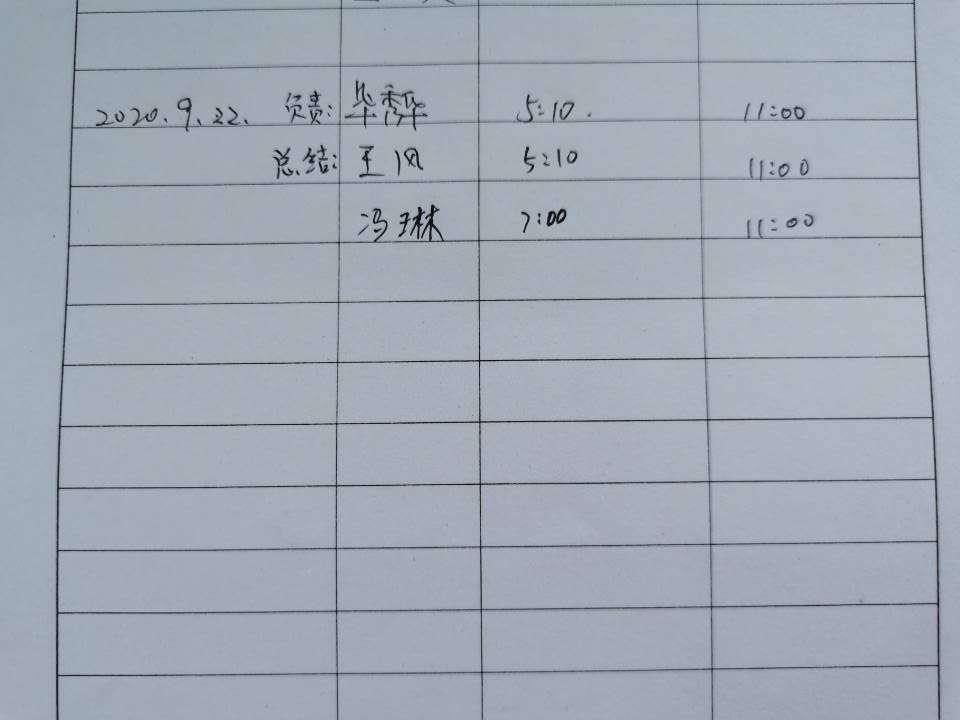 2020.9.22. 负责: 毕秀华 5:10. 11:00
总结: 王风 5:10 11:00
冯琳 7:00 11:00